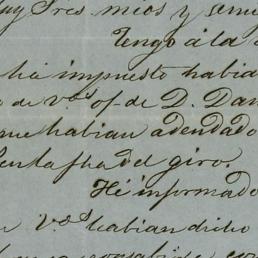 uy Sres mios y
Tengo á la
ha impuesto habia
de V.s of. de D. Dan
me habian adeudado
en la fha del giro.
He informado
V.s habian dicho